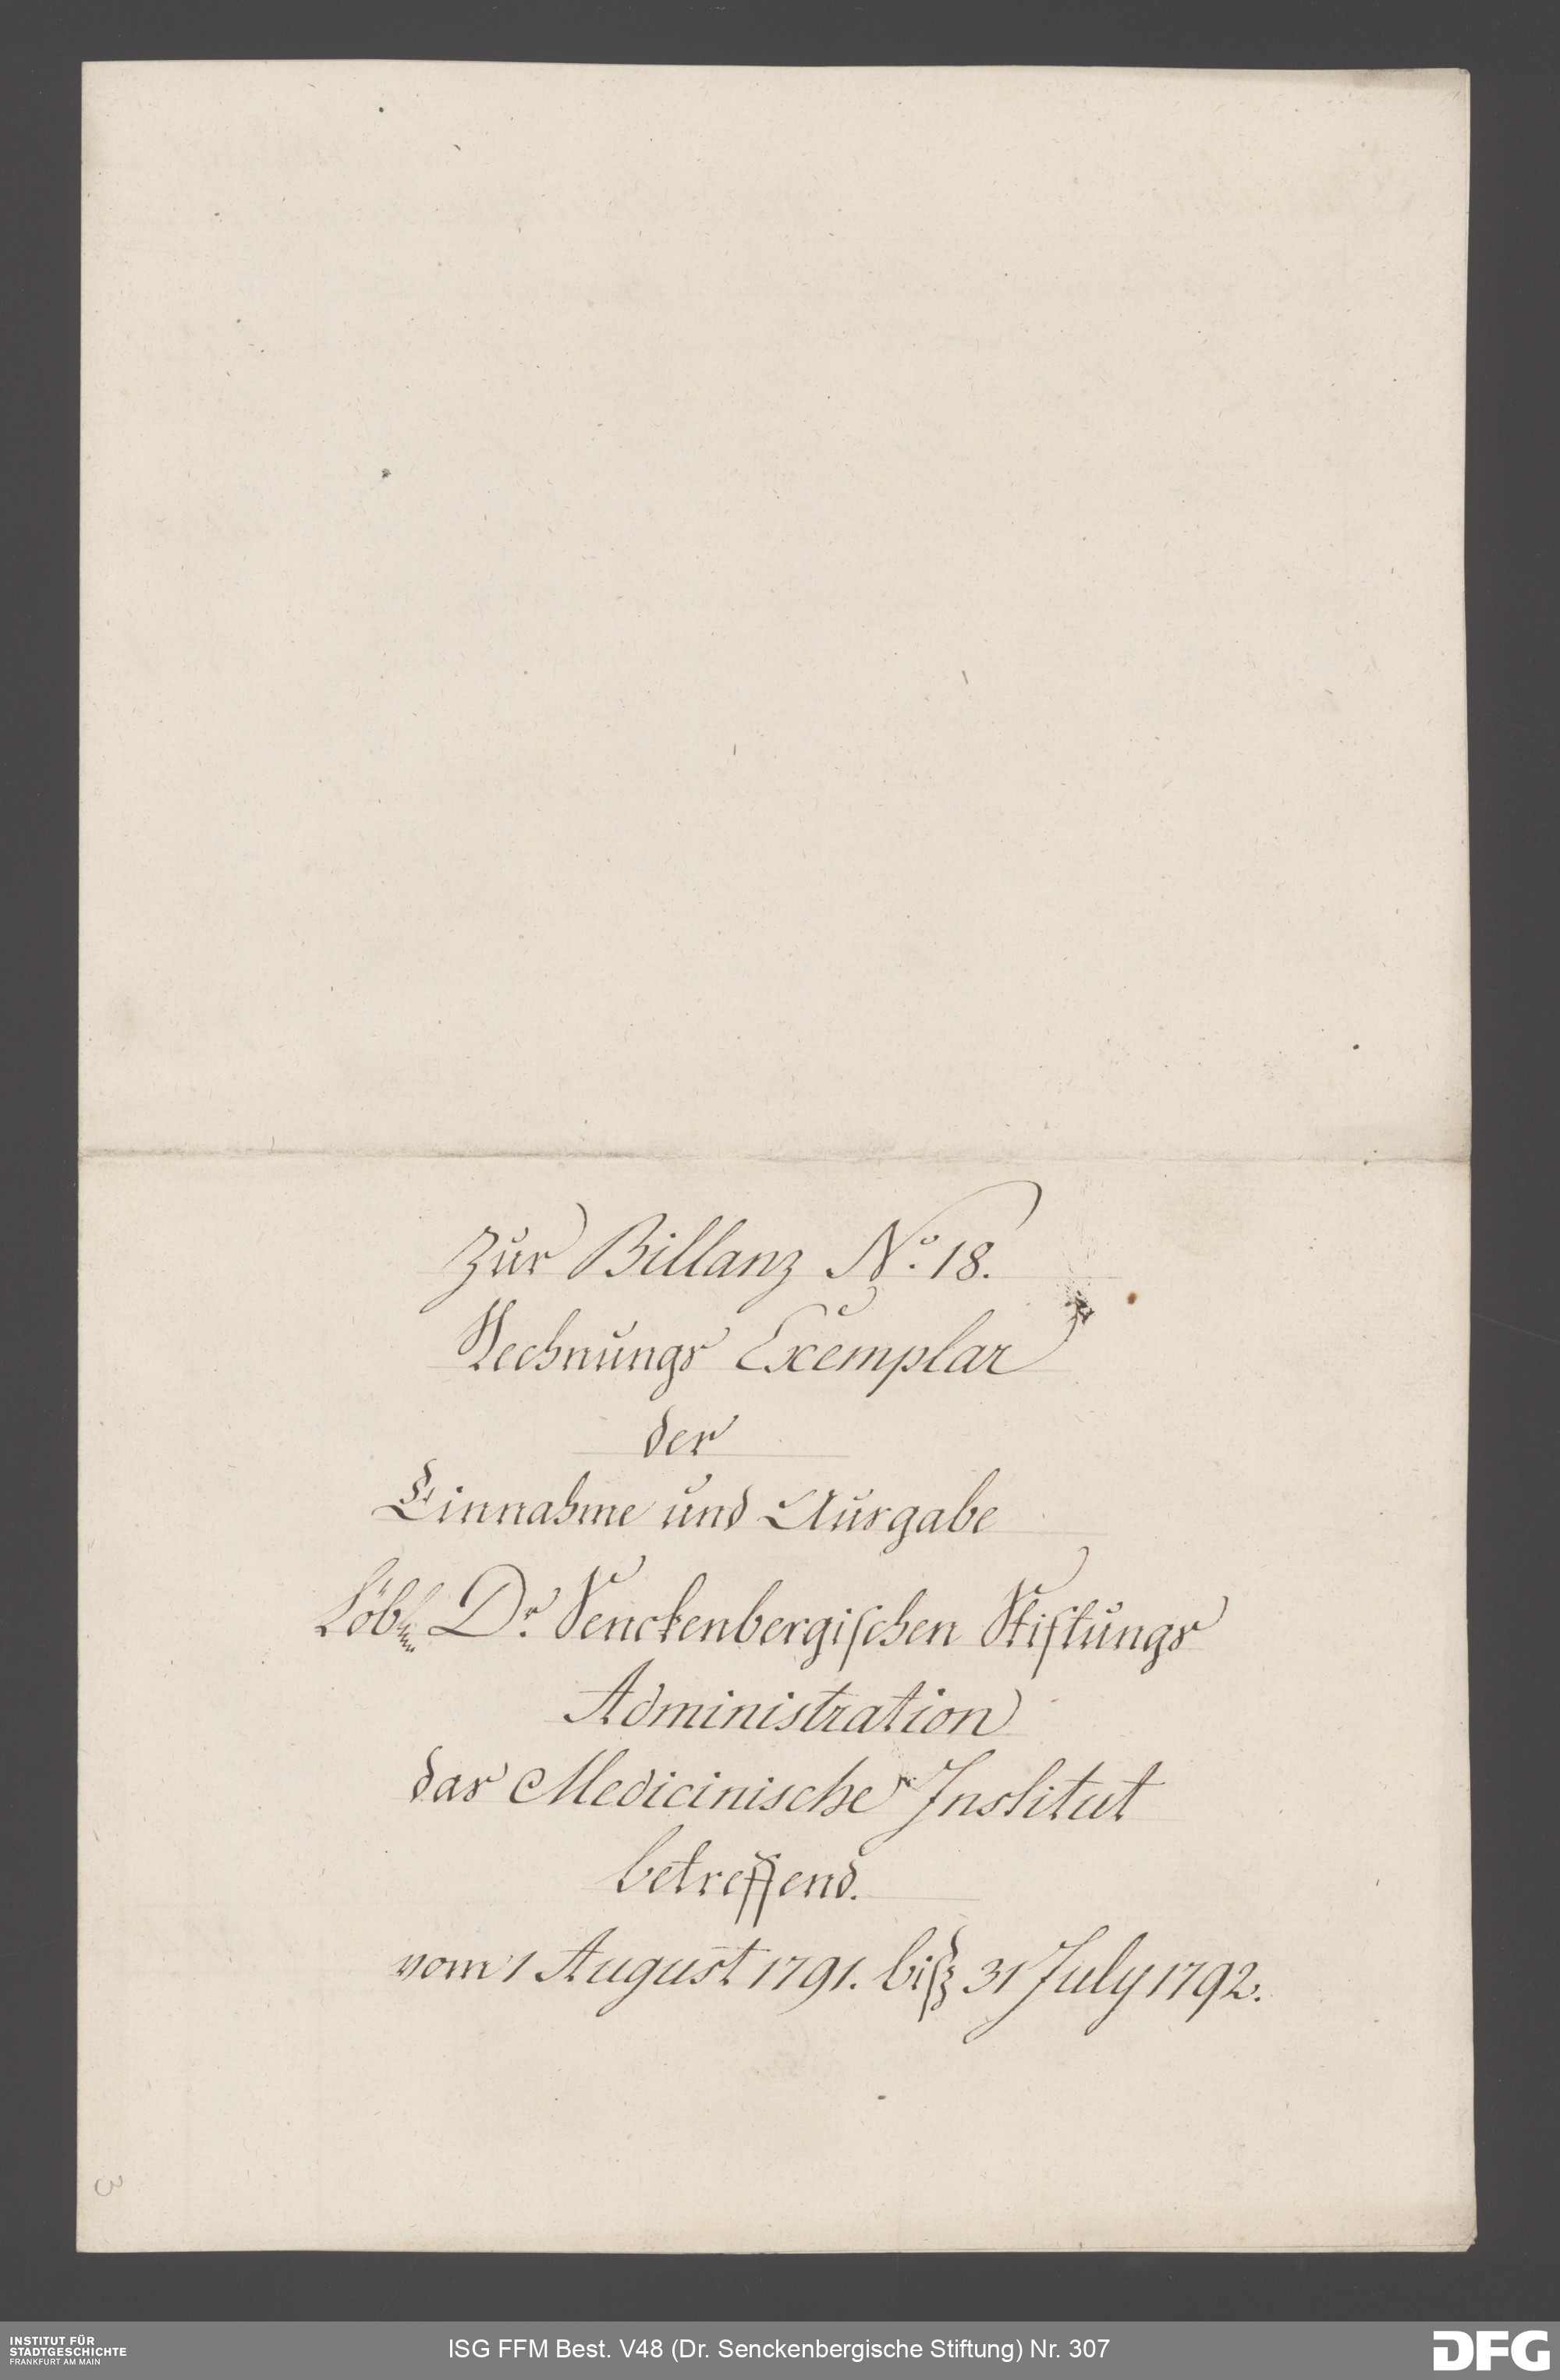 Zur Billanz No. 18.
Rechnungs Exemplar
der
Einnahme und Ausgabe
Löbl. Dr. Senckenbergischen Stiftungs
Administration
das Medicinische Institut
betreffend.
vom 1 August 1791. biß 31 July 1792.
3
INSTITUT FÜR
STADTGESCHICHTE
FRANKFURT AM MAIN
ISG FFM Best. V48 (Dr. Senckenbergische Stiftung) Nr. 307
DFG